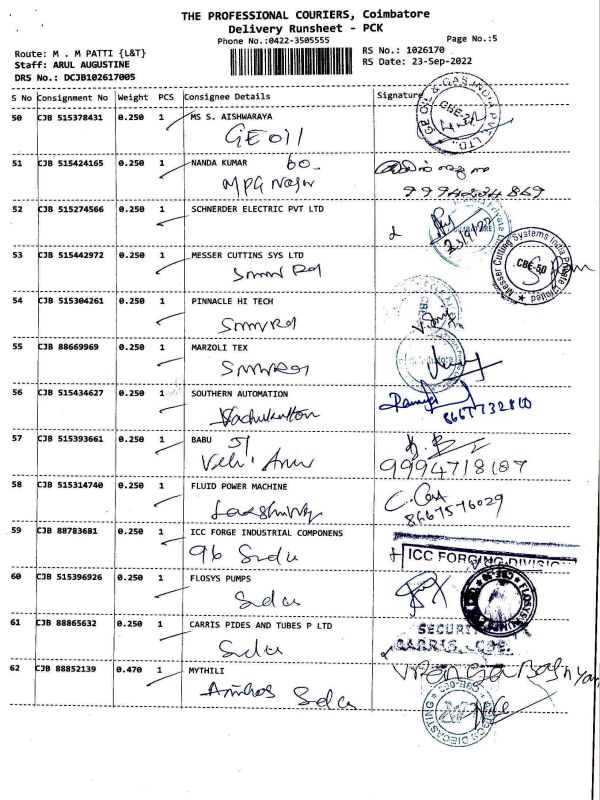 THE PROFESSIONAL COURIERS, Coimbatore
Delivery Runsheet - PCK
Phone No.:0422-3505555
Page No.:5
Route: M . M PATTI {L&T}
RS No.: 1026170
Staff: ARUL AUGUSTINE
RS Date: 23-Sep-2022
DRS No.: DCJB102617005
S No Consignment No Weight PCS Consignee Details Signature
50 CJB 515378431 0.250 1 MS S. AISHWARAYA
GE OIL & GAS INDIA PVT. LTD.
CBE-21
GE Oil
51 CJB 515424165 0.250 1 NANDA KUMAR 60
MPG Nagar
9994234869
52 CJB 515274566 0.250 1 SCHNERDER ELECTRIC PVT LTD
23/9/22
53 CJB 515442972 0.250 1 MESSER CUTTINS SYS LTD
Messer Cutting Systems India Private Limited
CBE-50
SMMV Rd
54 CJB 515304261 0.250 1 PINNACLE HI TECH
SMMV Rd
55 CJB 88669969 0.250 1 MARZOLI TEX
SMMV Rd
56 CJB 515434627 0.250 1 SOUTHERN AUTOMATION
57 CJB 515393661 0.250 1 BABU 51
9994718187
58 CJB 515314740 0.250 1 FLUID POWER MACHINE
8667576029
59 CJB 88783681 0.250 1 ICC FORGE INDUSTRIAL COMPONENS
96 Sidco
ICC FORGING DIVISION
60 CJB 515396926 0.250 1 FLOSYS PUMPS
Sidco
61 CJB 88865632 0.250 1 CARRIS PIDES AND TUBES P LTD
SECURITY
CARRIS, CBE.
Sidco
62 CJB 88852139 0.470 1 MYTHILI
Sidco